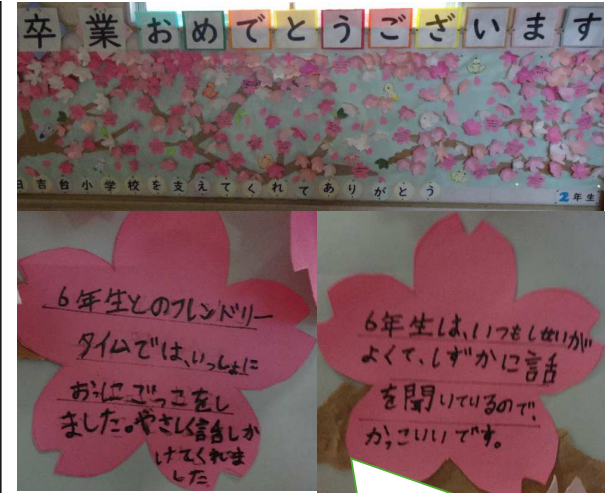 卒業おめでとうございます
日吉台小学校を支えてくれてありがとう
2年生
6年生とのフレンドリー
タイムでは、いっしょに
おにごっこをし
ました。やさしく話しか
けてくれま
した
6年生は、いつもしせいが
よくて、しずかに話
を聞いているので、
かっこいいです。